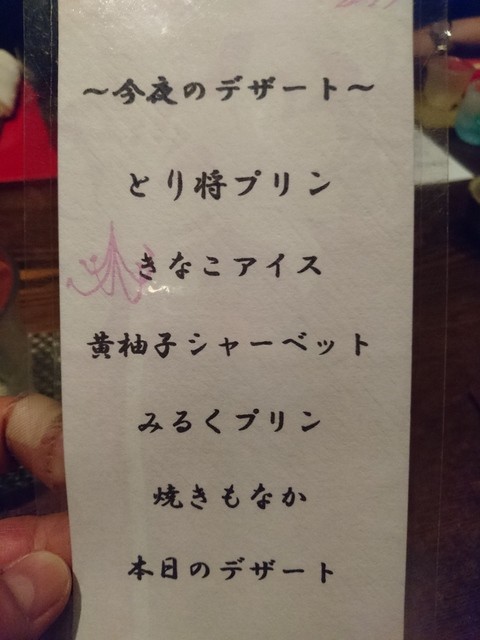 ～今夜のデザート～
とり将プリン
きなこアイス
黄柚子シャーベット
みるくプリン
焼きもなか
本日のデザート